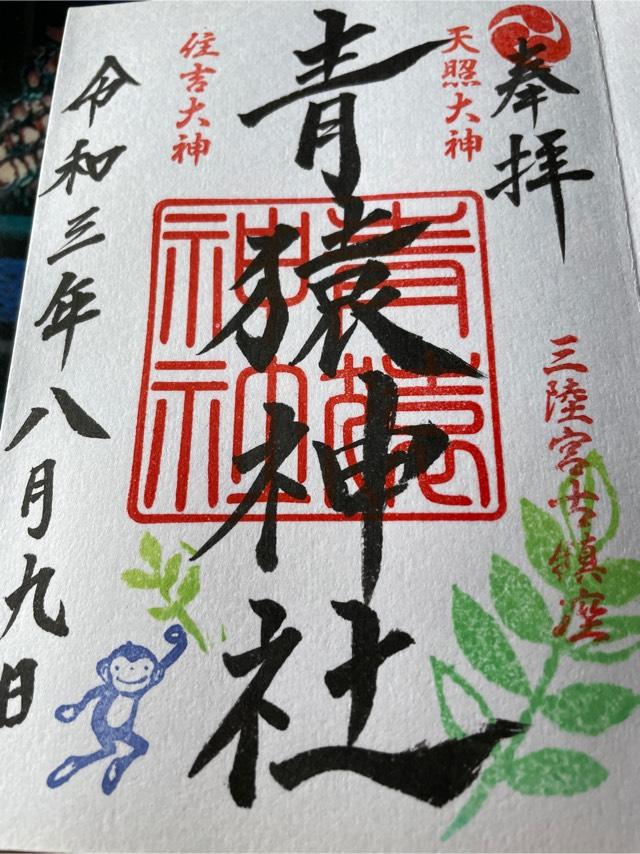 奉拝
天照大神
三陸宮古鎮座
青猿神社
住吉大神
令和三年八月九日